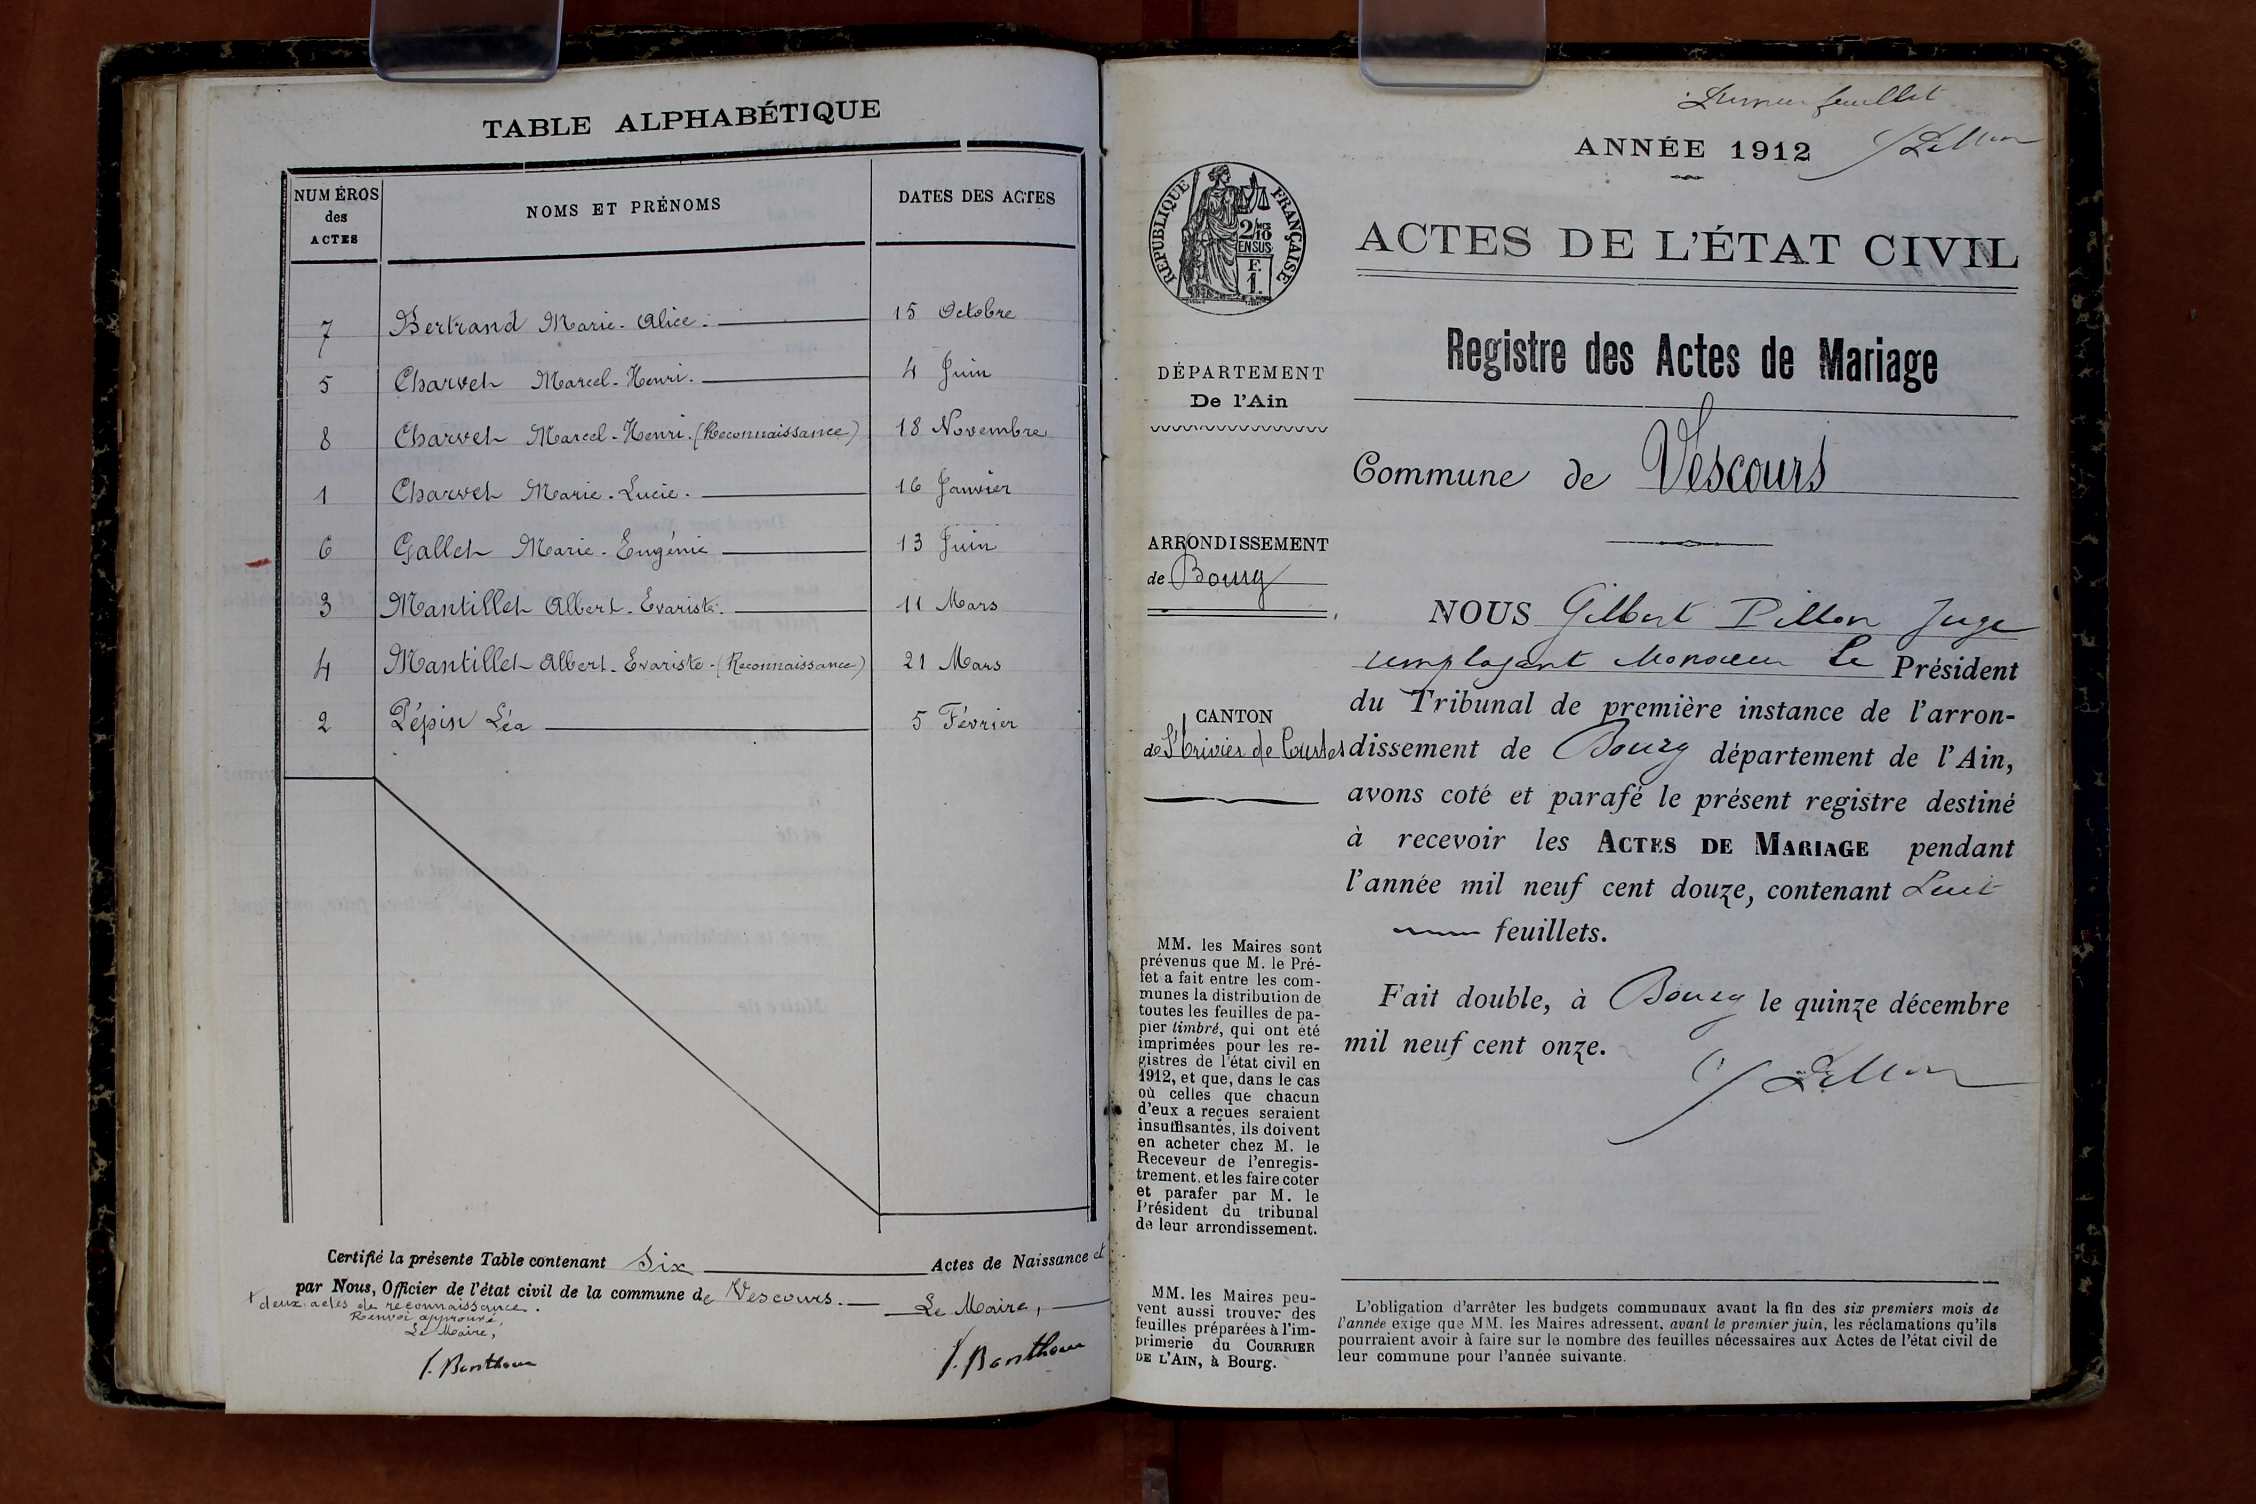 TABLE ALPHABÉTIQUE
NUMÉROS
des
ACTES
NOMS ET PRÉNOMS
DATES DES ACTES
7 Bertrand Marie-Alice. 15 Octobre
5 Charvet Marcel-Henri. 4 Juin
8 Charvet Marcel-Henri. (Reconnaissance) 18 Novembre
1 Charvet Marie-Lucie. 16 Janvier
6 Gallet Marie-Eugénie 13 Juin
3 Mantillet Albert-Evariste. 11 Mars
4 Mantillet Albert-Evariste-(Reconnaissance) 21 Mars
2 Pépin Léa 5 Février
Certifié la présente Table contenant Six Actes de Naissance et
par Nous, Officier de l'état civil de la commune de Vescours. Le Maire,
+ deux actes de reconnaissance.
Renvoi approuvé,
Le Maire,
J. Berthoux
J. Berthoux
Premier feuillet
ANNÉE 1912
G Pillon
RÉPUBLIQUE FRANÇAISE
2/10 MES
EN SUS
F.
1.
ACTES DE L'ÉTAT CIVIL
Registre des Actes de Mariage
DÉPARTEMENT
De l'Ain
Commune de Vescours
ARRONDISSEMENT
de Bourg
CANTON
de St Trivier de Courtes
NOUS Gilbert Pillon Juge
remplaçant Monsieur le Président
du Tribunal de première instance de l'arron-
dissement de Bourg département de l'Ain,
avons coté et parafé le présent registre destiné
à recevoir les ACTES DE MARIAGE pendant
l'année mil neuf cent douze, contenant huit
feuillets.
Fait double, à Bourg le quinze décembre
mil neuf cent onze.
G Pillon
MM. les Maires sont
prévenus que M. le Pré-
fet a fait entre les com-
munes la distribution de
toutes les feuilles de pa-
pier timbré, qui ont été
imprimées pour les re-
gistres de l'état civil en
1912, et que, dans le cas
où celles que chacun
d'eux a reçues seraient
insuffisantes, ils doivent
en acheter chez M. le
Receveur de l'enregis-
trement, et les faire coter
et parafer par M. le
Président du tribunal
de leur arrondissement.
MM. les Maires peu-
vent aussi trouver des
feuilles préparées à l'im-
primerie du COURRIER
DE L'AIN, à Bourg.
L'obligation d'arrêter les budgets communaux avant la fin des six premiers mois de
l'année exige que MM. les Maires adressent, avant le premier juin, les réclamations qu'ils
pourraient avoir à faire sur le nombre des feuilles nécessaires aux Actes de l'état civil de
leur commune pour l'année suivante.